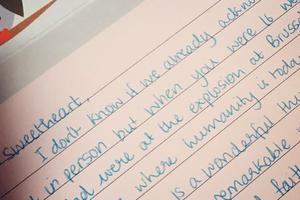 Sweetheart,
I don't know if we already
in person but when you were 16 w
were at the explosion at Brusse
where humanity is today
is a wonderful
remarkable